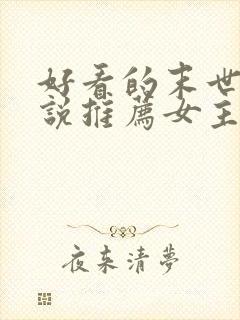 好看的末世
說推薦女主
夜来清夢